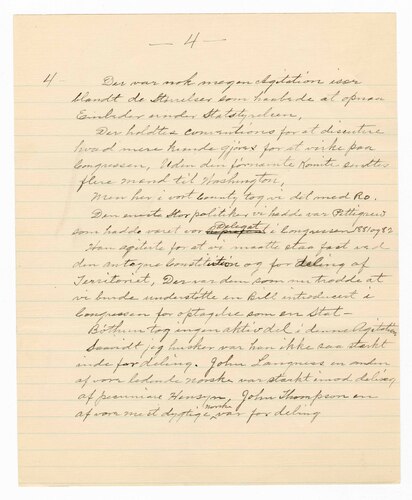 — 4 —
4 — Der var nok megen Agitation især
blandt de Størrelser som haabede at opnaa
Embeder under Statstyrelsen,
Der holdtes Conventions for at discutere
hvad mere kunde gjøres for at virke paa
Congressen, Uden den førnævnte Komite sendtes
flere mænd til Washington,
Men her i vort County tog vi del med Ro.
Den eneste Stor politiker vi hadde var Pettigrew
som hadde været vor Delegat i Congressen 1881 og 82
Han agiterte for at vi maatte staa fast ved
den antagne Constitution og for deling af
Territoriet, Der var dem som trodde at
vi burde understøtte en Bill introducert i
Congressen for optagelse som en Stat —
Bothun tog ingen aktiv del i denne Agitation
Saavidt jeg husker var han ikke saa stærkt
inde for deling. John Langness en anden
af vore ledende norske var stærkt imod deling
af pecuniære Hensyn, John Thompson en
af vore mest dygtige norske var for deling